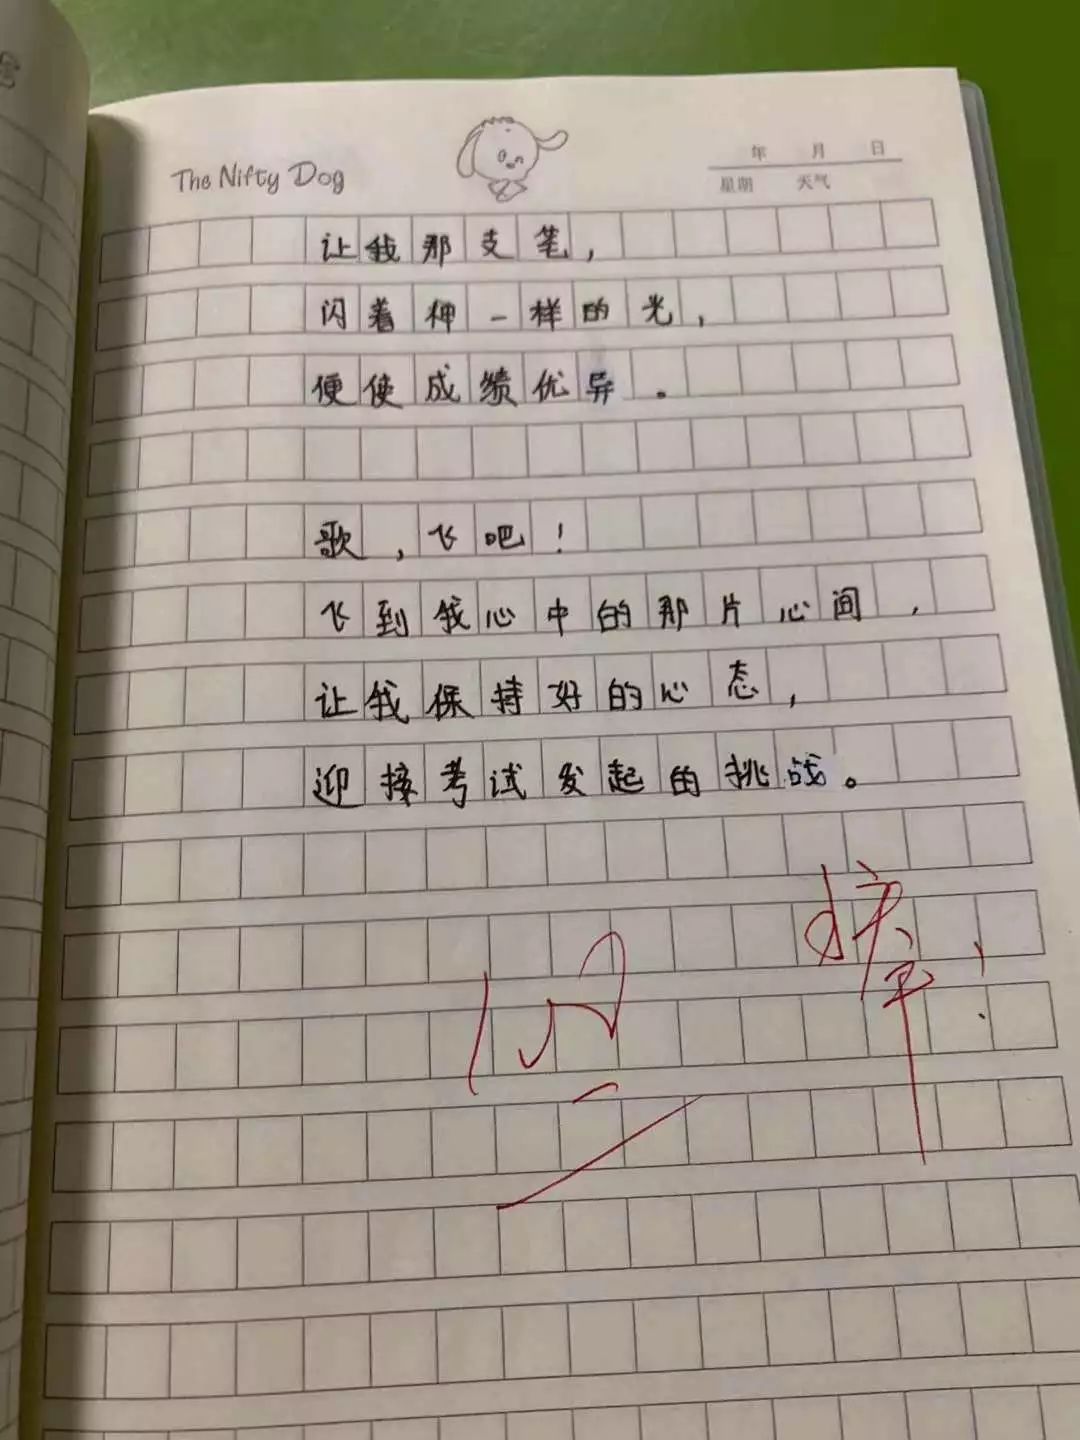 The Nifty Dog
年 月 日
星期 天气
让我那支笔，
闪着神一样的光，
便使成绩优异。
歌，飞吧！
飞到我心中的那片心间，
让我保持好的心态，
迎接考试发起的挑战。